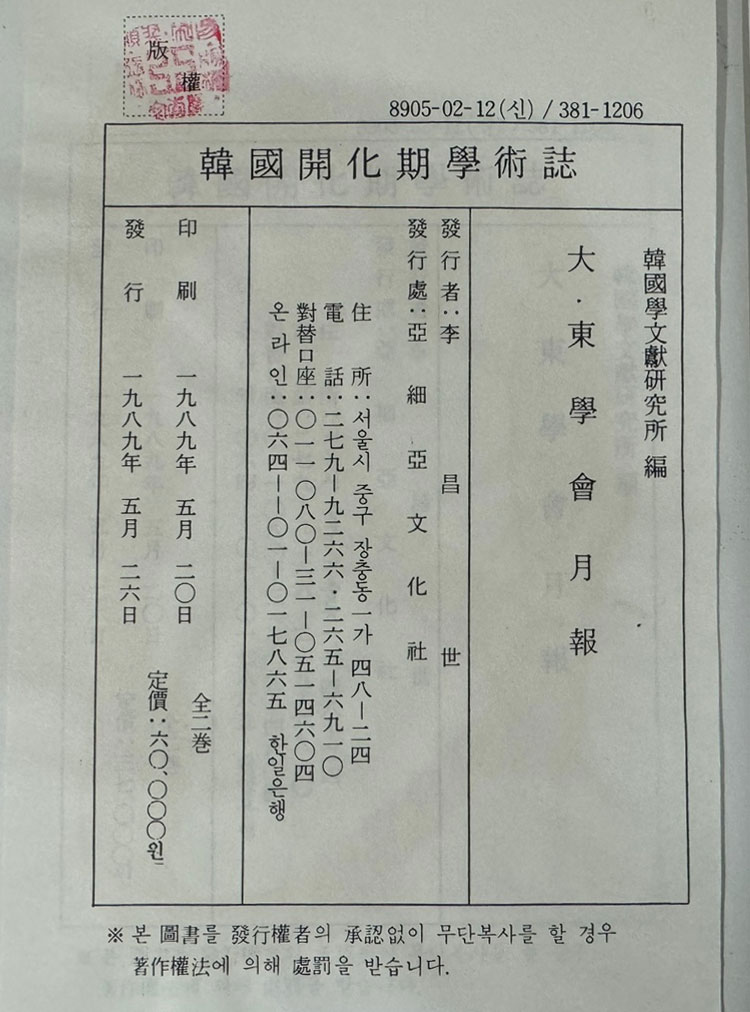 版權
8905-02-12(신) / 381-1206
韓國開化期學術誌
韓國學文獻研究所 編
大·東學會月報
發行者:李昌世
發行處:亞細亞文化社
住所:서울시 중구 장충동一가 四八—二四
電話:二七九—九二六六·二六五—六九一〇
對替口座:〇一一〇八〇—三一—〇五一四六〇四
온라인:〇六四—〇一—〇一七八六五 한일은행
印刷 一九八九年 五月 二〇日
發行 一九八九年 五月 二六日
全二卷
定價:六〇、〇〇〇원
※ 본 圖書를 發行權者의 承認없이 무단복사를 할 경우
著作權法에 의해 處罰을 받습니다.